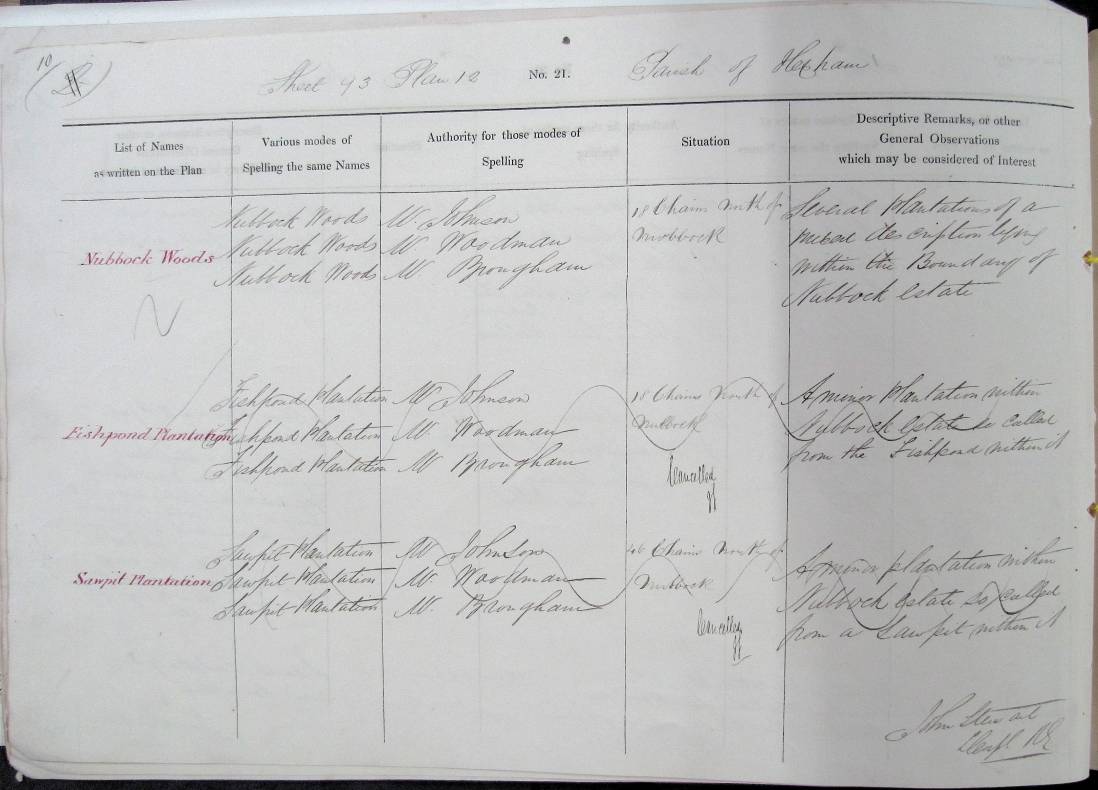 10
Sheet 93 Plan 12 No. 21. Parish of Hexham
List of Names
as written on the Plan
Various modes of
Spelling the same Names
Authority for those modes of
Spelling
Situation
Descriptive Remarks, or other
General Observations
which may be considered of Interest
Nubbock Woods
Nubbock Woods
Nubbock Woods
Nubbock Woods
W. Johnson
W. Woodman
W. Brougham
18 Chains North of
Nubbock
Several Plantations of a
mixed description lying
within the Boundary of
Nubbock estate
N
Fishpond Plantation
Fishpond Plantation
Fishpond Plantation
Fishpond Plantation
W Johnson
W. Woodman
W Brougham
18 Chains North of
Nubbock
Cancelled
A minor Plantation within
Nubbock estate so called
from the Fishpond within it
Sawpit Plantation
Sawpit Plantation
Sawpit Plantation
Sawpit Plantation
W Johnson
W. Woodman
W. Brougham
Chains North of
Nubbock
Cancelled
A minor plantation within
Nubbock Estate so called
from a Sawpit within it
John Stewart
RE